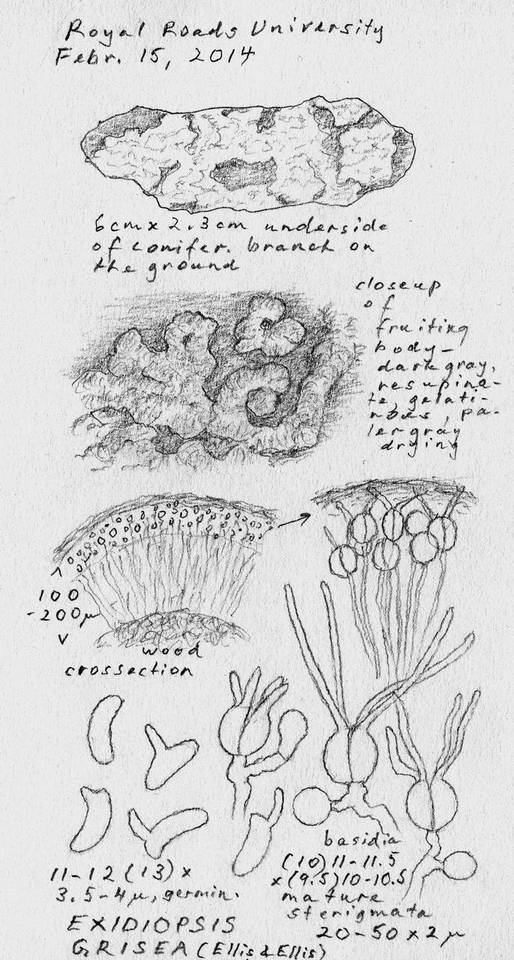 Royal Roads University
Febr. 15, 2014
6cm x 2.3cm underside
of conifer. branch on
the ground
closeup
of
fruiting
body-
dark gray,
resupina-
te, gelati-
nous, pa-
ler gray
drying
100
-200μ
wood
crossection
11-12 (13) x
3.5-4μ, germin.
basidia
(10) 11-11.5
x (9.5) 10-10.5
mature
sterigmata
20-50 x 2 μ
EXIDIOPSIS
GRISEA (Ellis & Ellis)